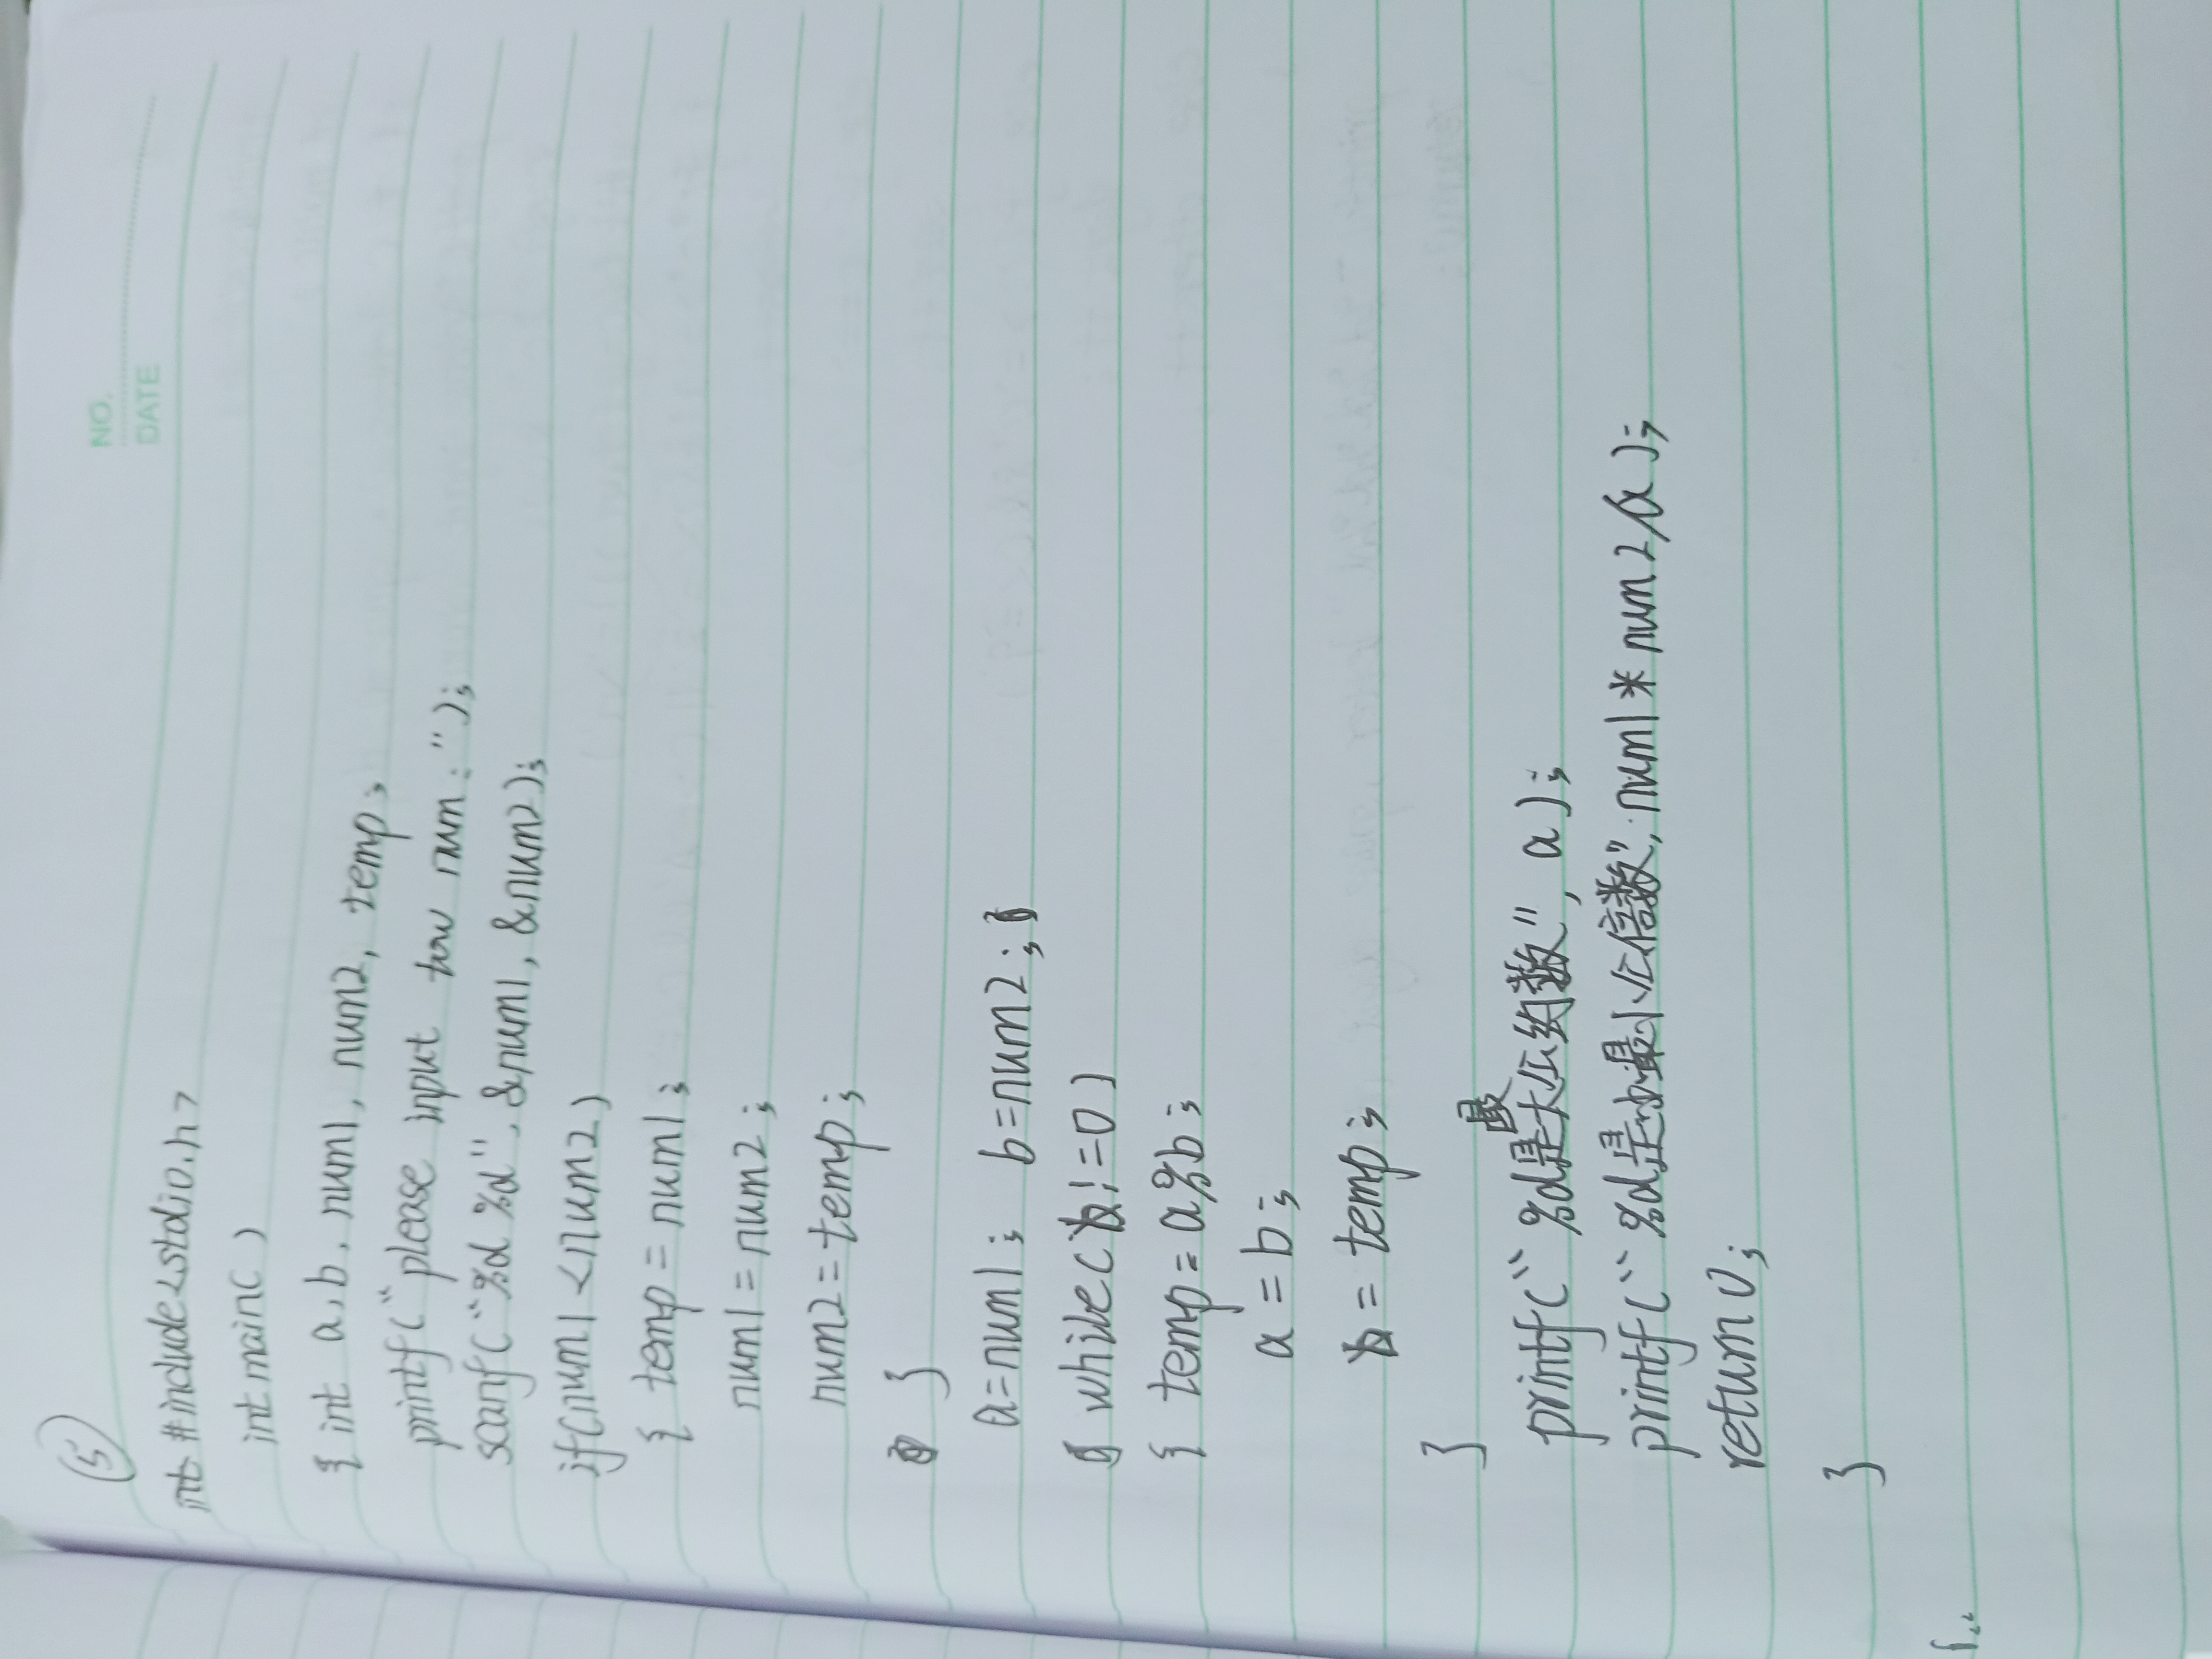 NO.
DATE
⑤
#include<stdio.h>
int main()
{ int a,b,num1,num2,temp;
printf("please input tow num:");
scanf("%d%d",&num1,&num2);
if(num1<num2)
{ temp=num1;
num1=num2;
num2=temp;
}
a=num1; b=num2;
while(b!=0)
{ temp=a%b;
a=b;
b=temp;
}
printf("%d是最大公约数",a);
printf("%d是最小公倍数",num1*num2/a);
return 0;
}